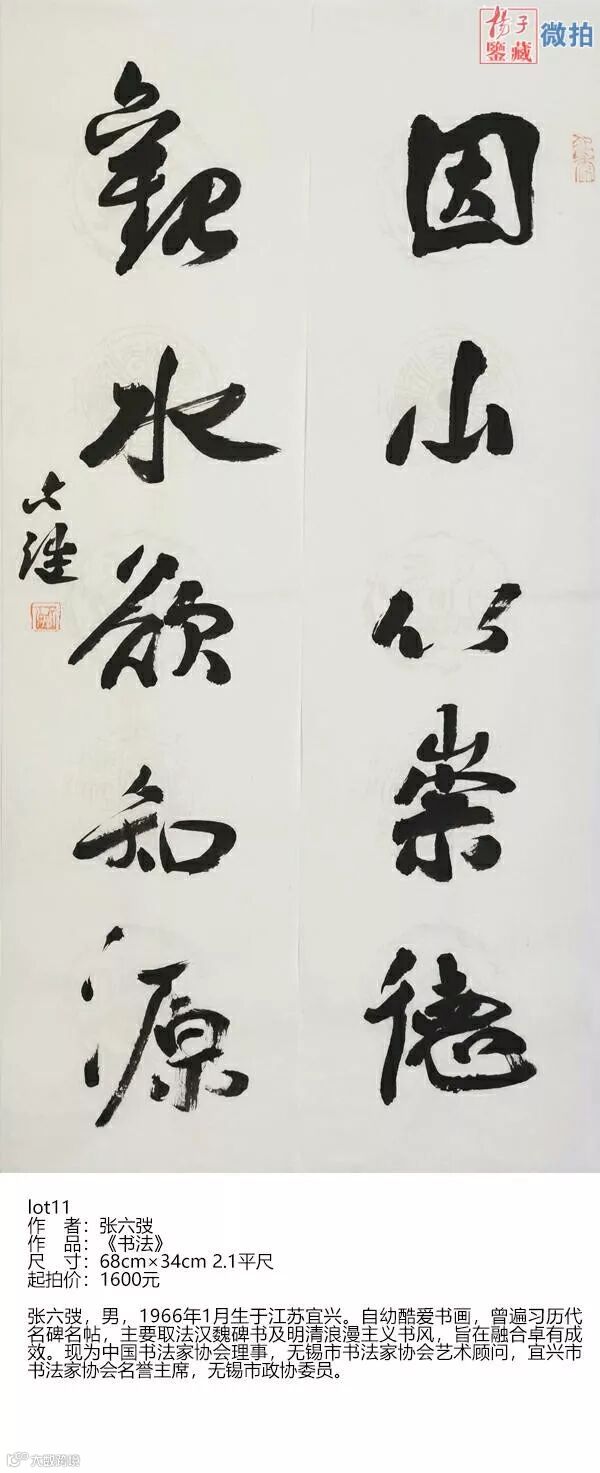 楊子
鑒藏
微拍
因山以崇德
觀水欲知源
六弢
lot11
作 者：张六弢
作 品：《书法》
尺 寸：68cm×34cm 2.1平尺
起拍价：1600元
张六弢，男，1966年1月生于江苏宜兴。自幼酷爱书画，曾遍习历代
名碑名帖，主要取法汉魏碑书及明清浪漫主义书风，旨在融合卓有成
效。现为中国书法家协会理事，无锡市书法家协会艺术顾问，宜兴市
书法家协会名誉主席，无锡市政协委员。
大威跨境